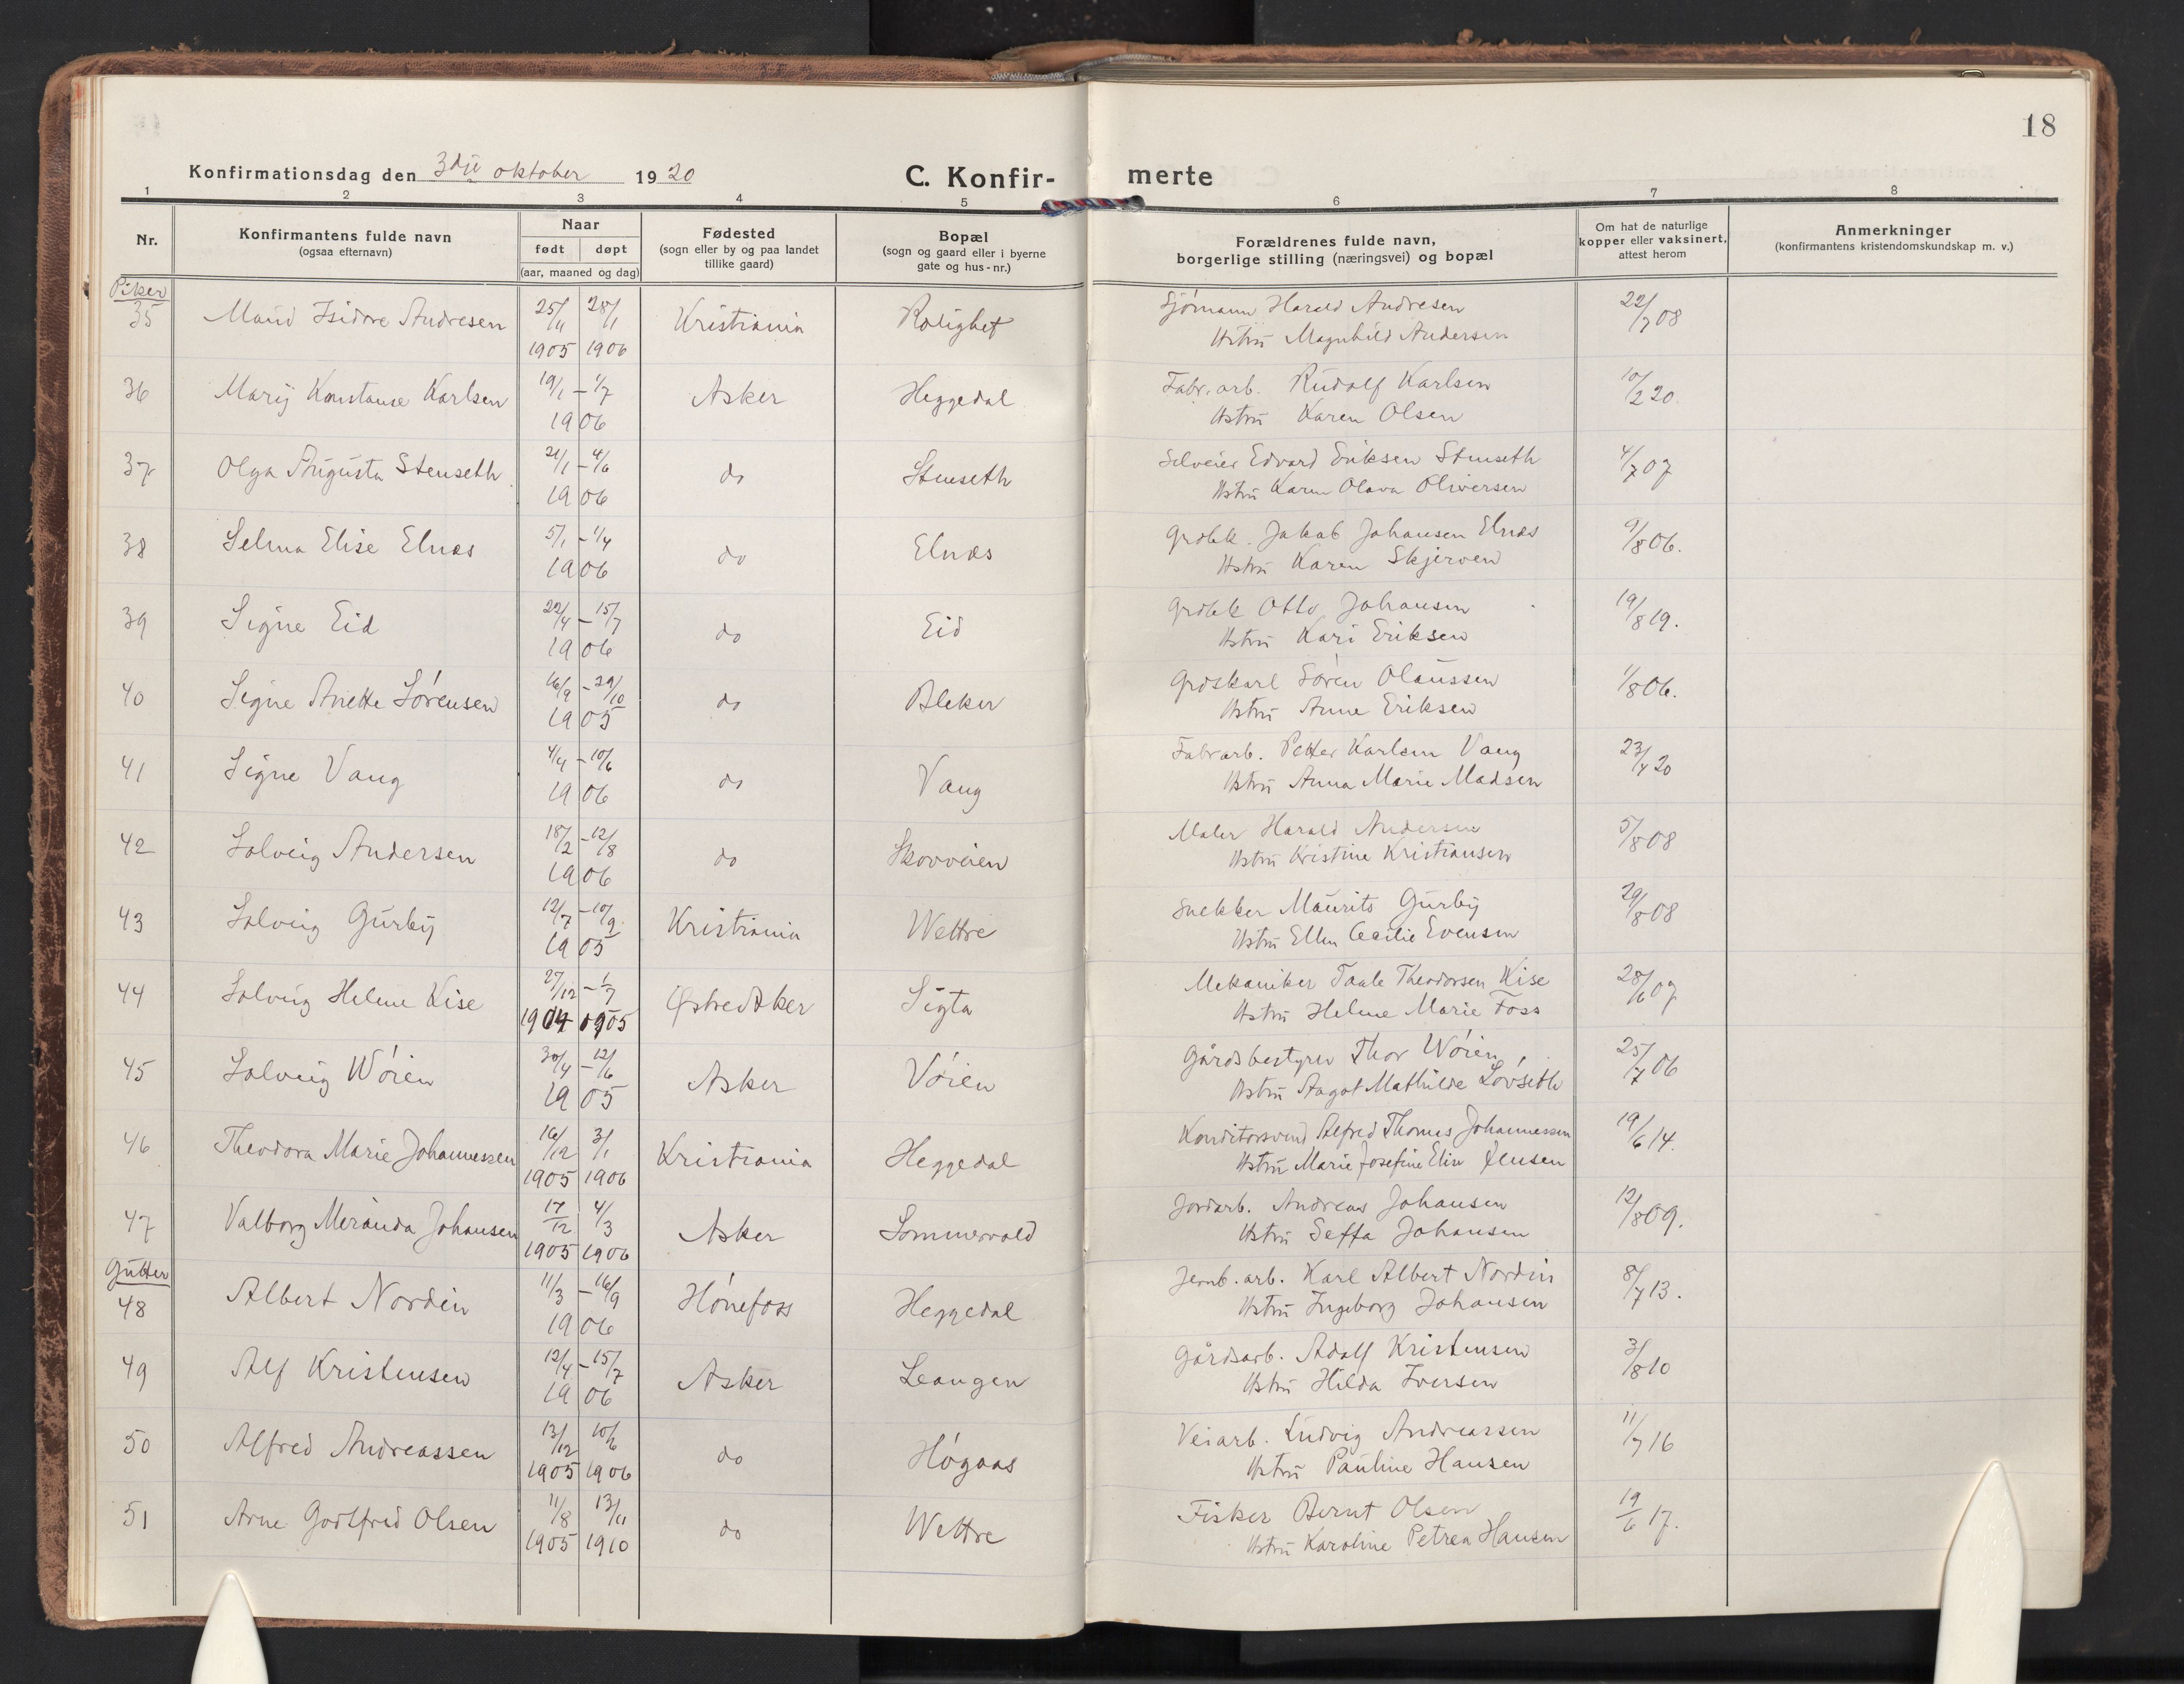 18
Konfirmationsdag den 3dje oktober 1920
C. Konfir-
merte
1 2 3 4 5 6 7 8
Nr.
Konfirmantens fulde navn
(ogsaa efternavn)
Naar
født døpt
(aar, maaned og dag)
Fødested
(sogn eller by og paa landet
tillike gaard)
Bopæl
(sogn og gaard eller i byerne
gate og hus-nr.)
Forældrenes fulde navn,
borgerlige stilling (næringsvei) og bopæl
Om hat de naturlige
kopper eller vaksinert,
attest herom
Anmerkninger
(konfirmantens kristendomskundskap m. v.)
Piker
35 Maud Isidore Andresen 25/11 1905 28/1 1906 Kristiania Rolighet Sjømann Harald Andresen 22/7 08
Hstru Magnhild Andersen
36 Mary Konstanse Karlsen 19/1 – 1/7 1906 Asker Heggedal Fabr.arb. Rudolf Karlsen 10/2 20.
Hstru Karen Olsen
37 Olga Augusta Stenseth 21/1 – 4/6 1906 do Stenseth Selveier Edvard Eriksen Stenseth 4/7 07
Hstru Karen Olava Oliversen
38 Selma Elise Elnæs 5/1 – 1/4 1906 do Elnæs Grdbk. Jakob Johansen Elnæs 9/8 06.
Hstru Karen Skjerven
39 Signe Eid 22/4 – 15/7 1906 do Eid Grdbk Otto Johansen 19/8 19.
Hstru Kari Eriksen
40 Signe Anette Sørensen 16/9 – 29/10 1905 do Bleker Grdskarl Søren Olaussen 1/8 06.
Hstru Anne Eriksen
41 Signe Vang 4/4 – 10/6 1906 do Vang Fabrarb. Petter Karlsen Vang 23/4 20
Hstru Anna Marie Madsen
42 Solveig Andersen 18/2 – 12/8 1906 do Skovveien Maler Harald Andersen 5/8 08
Hstru Kristine Kristiansen
43 Solveig Gurby 12/7 – 10/9 1905 Kristiania Wettre Snekker Maurits Gurby 29/8 08
Hstru Ellen Cecilie Evensen
44 Solveig Helene Kise 27/12 – 1/7 1904 1905 Østre Aker Sigta Mekaniker Taale Theodorsen Kise 28/6 07
Hstru Helene Marie Foss
45 Solveig Wøien 30/4 – 12/6 1905 Asker Vøien Gårdsbestyrer Thor Wøien, 25/7 06
Hstru Aagot Mathilde Løvseth
46 Theodora Marie Johannessen 16/12 1905 3/1 1906 Kristiania Heggedal Konditorsvend Alfred Thomas Johannessen 19/6 14.
Hstru Marie Josefine Elise Jensen
47 Valborg Meranda Johansen 17/12 1905 4/3 1906 Asker Sommervold Jordarb. Andreas Johansen 12/8 09.
Hstru Seffa Johansen
Gutter
48 Albert Nordin 11/3 – 16/9 1906 Hønefoss Heggedal Jernb.arb. Karl Albert Nordin 8/7 13.
Hstru Ingeborg Johansen
49 Alf Kristensen 12/4 – 15/7 1906 Asker Leangen Gårdsarb. Adolf Kristensen 3/8 10
Hstru Hilda Iversen
50 Alfred Andreassen 13/12 1905 10/6 1906 do Høgaas Veiarb. Ludvig Andreassen 11/7 16
Hstru Pauline Hansen
51 Arne Godtfred Olsen 11/8 1905 13/11 1910 do Wettre Fisker Bernt Olsen 19/6 17.
Hstru Karoline Petrea Hansen